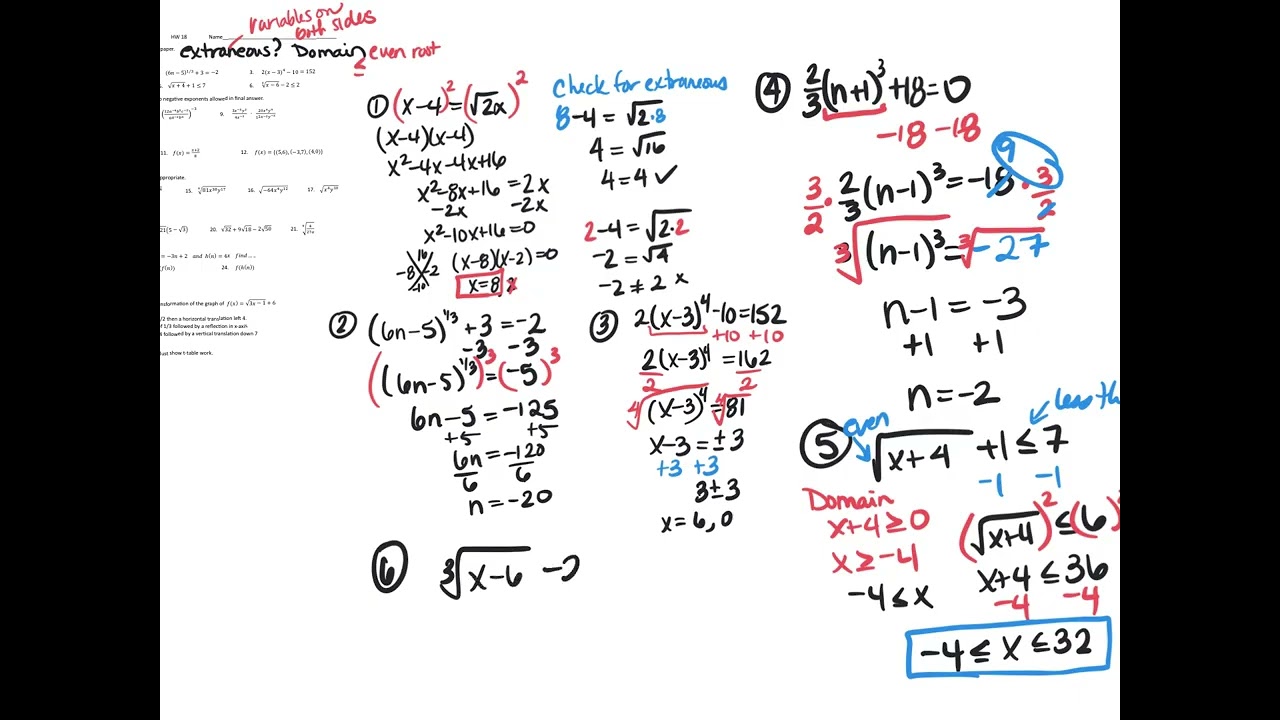 variables on
both sides
HW 18 Name
paper.
extraneous? Domain even root
2
(6n − 5)^{1/3} + 3 = −2 3. 2(x − 3)^4 − 10 = 152
√x + 4 + 1 ≤ 7 6. ∛x − 6 − 2 ≤ 2
o negative exponents allowed in final answer.
9.
11. 12. f(x) = {(5,6), (−3,7), (4,0)}
propriate.
15. 16. 17.
(5 − √3) 20. √32 + 9√18 − 2√50 21.
= −3n + 2 and h(n) = 4n find
f(n)) 24. f(h(n))
nsformation of the graph of f(x) = √3x − 1 + 6
/2 then a horizontal translation left 4.
f 1/3 followed by a reflection in x-axis
followed by a vertical translation down 7
ust show t-table work.
① (x-4)² = (√2x)²
(x-4)(x-4)
x²-4x-4x+16
x²-8x+16 = 2x
-2x -2x
x²-10x+16=0
16
-8 -2 (x-8)(x-2)=0
-10
x=8, 2
check for extraneous
8-4 = √2·8
4 = √16
4=4 ✓
2-4 = √2·2
-2 = √4
-2 ≠ 2 x
② (6n-5)^{1/3} + 3 = -2
-3 -3
((6n-5)^{1/3})³ = (-5)³
6n-5 = -125
+5 +5
6n = -120
6 6
n = -20
③ 2(x-3)⁴-10=152
+10 +10
2(x-3)⁴ = 162
2 2
⁴√(x-3)⁴ = ⁴√81
x-3 = ±3
+3 +3
3±3
x= 6, 0
④ 2/3(n+1)³+18=0
-18 -18
9
3/2 · 2/3(n-1)³=-18 · 3/2
³√(n-1)³ = ³√-27
n-1 = -3
+1 +1
n = -2
even less th
⑤ √x+4 +1 ≤ 7
-1 -1
Domain
x+4 ≥ 0
x ≥ -4
-4 ≤ x
(√x+4)² ≤ (6)
x+4 ≤ 36
-4 -4
-4 ≤ x ≤ 32
⑥ ³√x-6 -